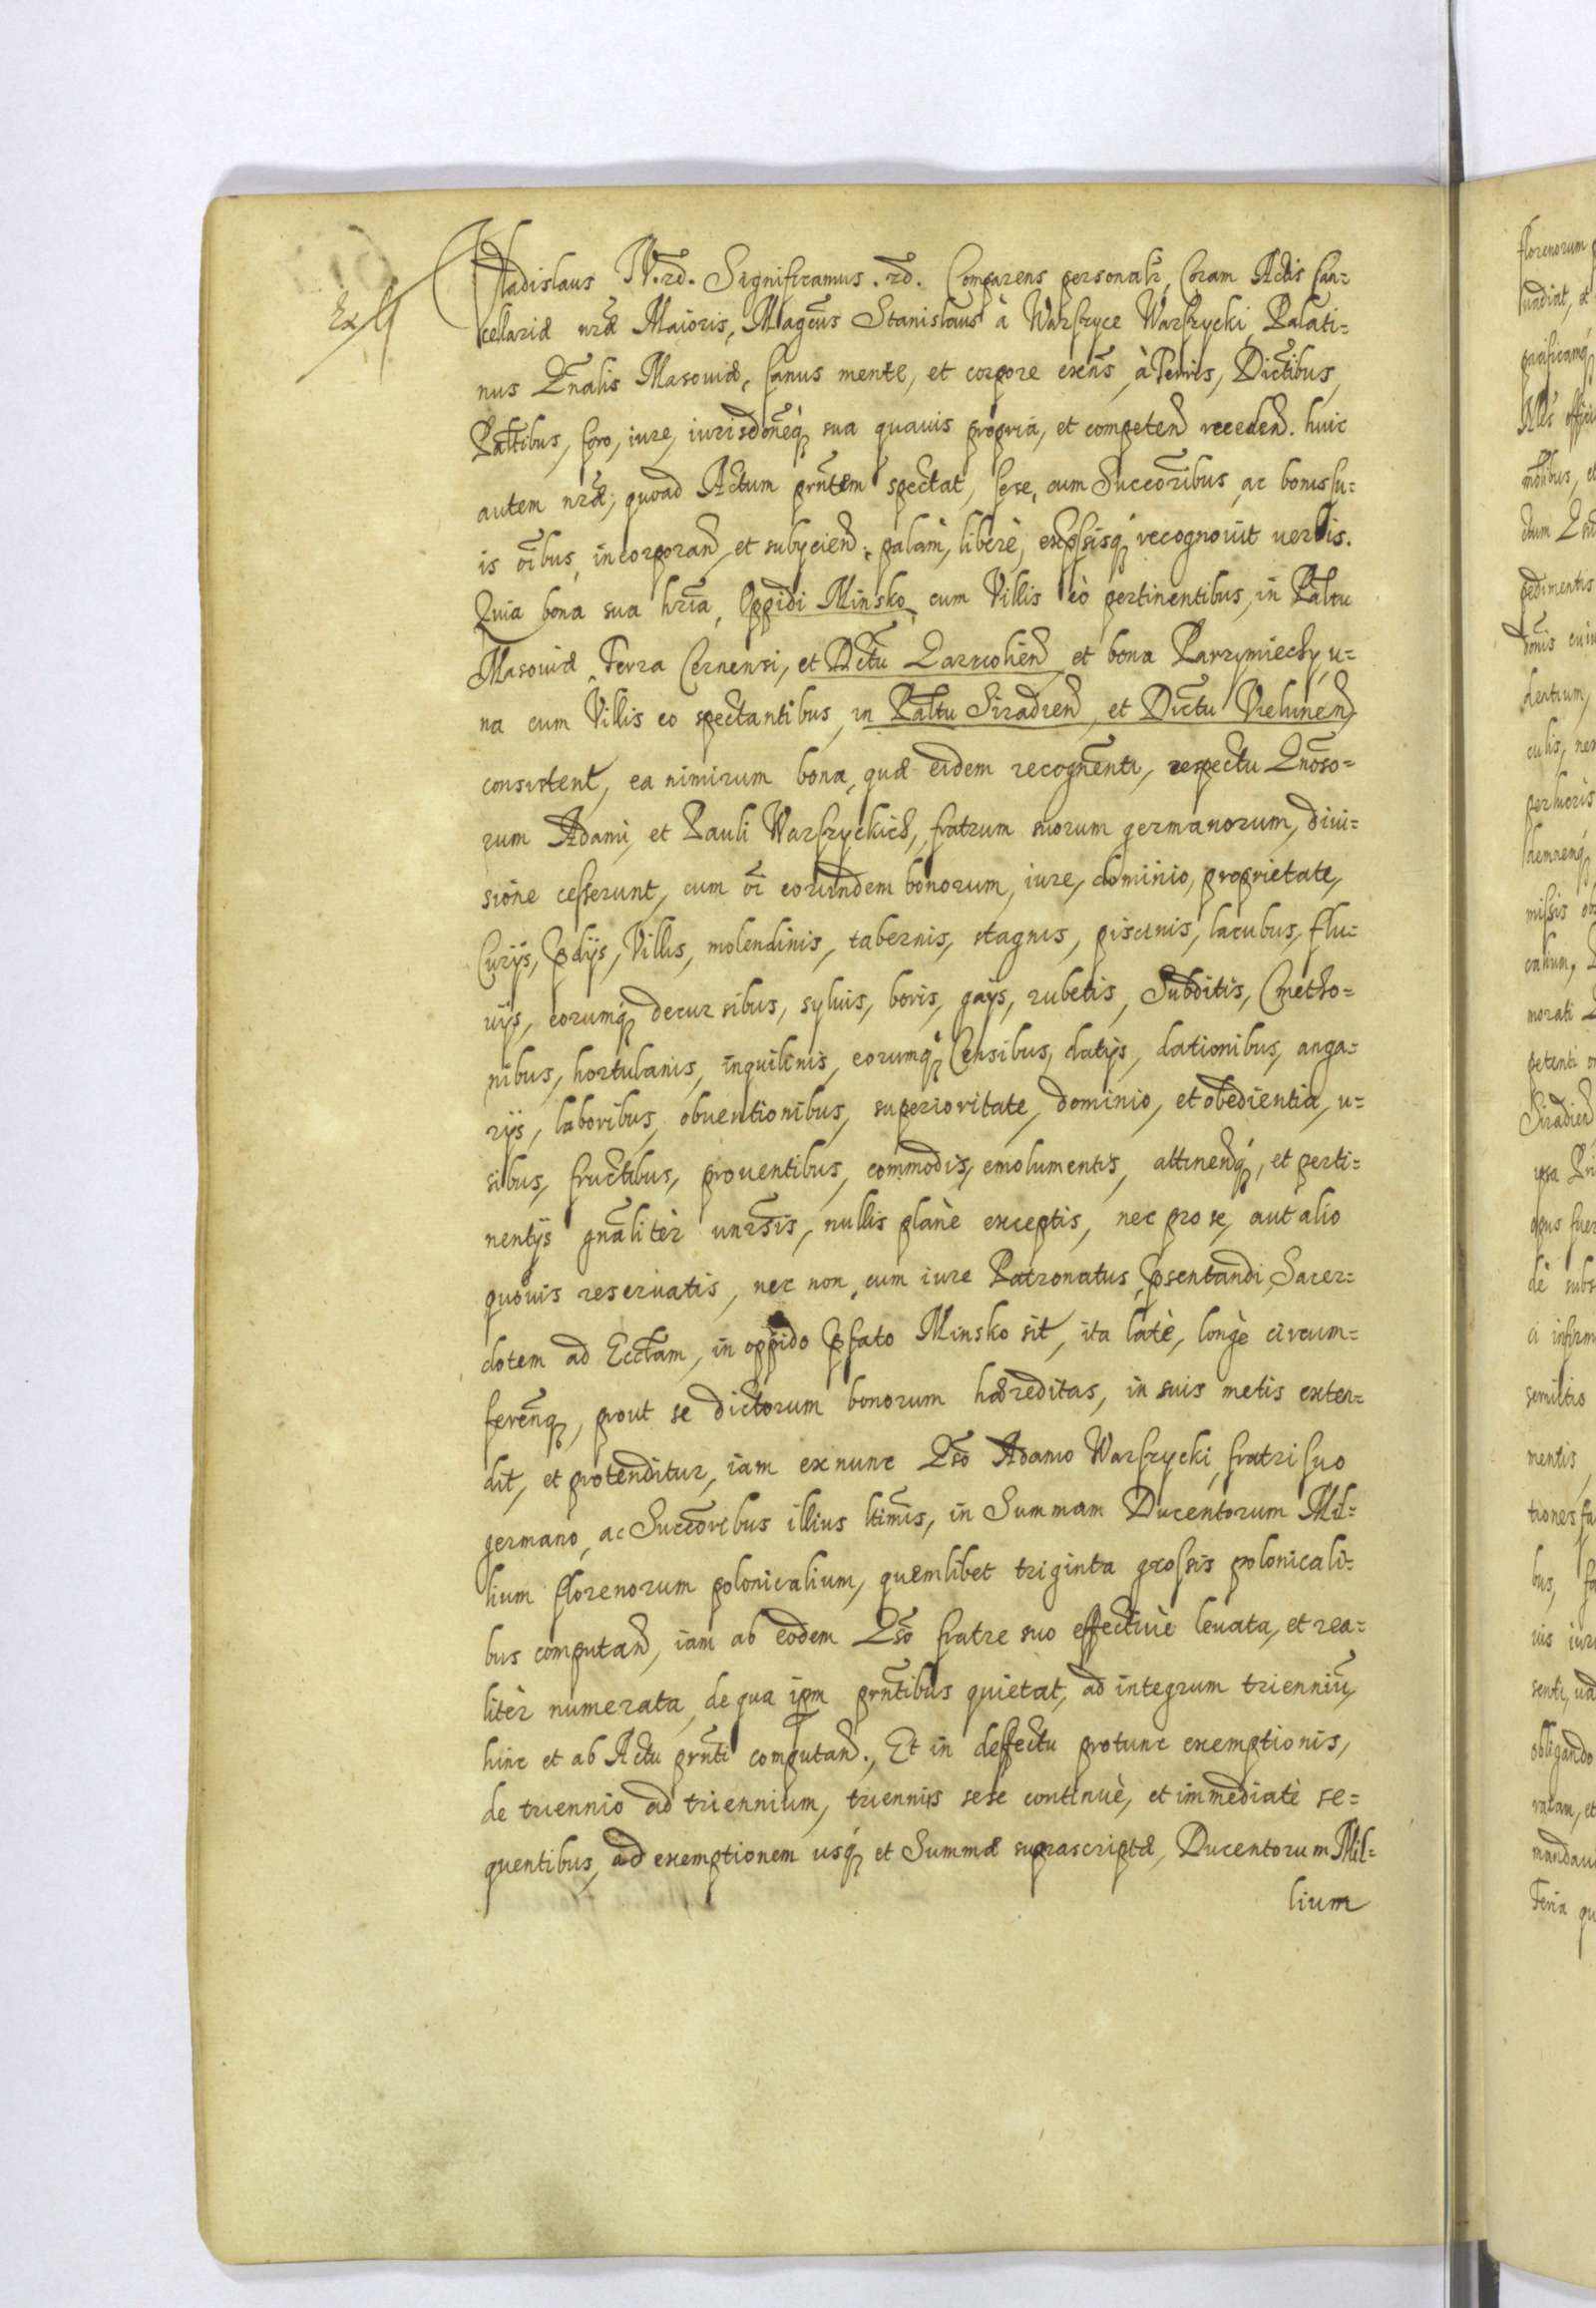 Vladislaus IV. etc. Significamus. etc. Comparens personalr, Coram Actis Can=
cellariæ nræ Maioris, Magcus Stanislaus à Warszyce Warszycki, Palati=
nus Gnalis Masouiæ, sanus mente, et corpore exens, à Terris, Dictibus,
Palttibus, foro, iure, iurisdoneq, sua quauis propria, et competen receden. huic
autem nræ, quoad Actum prntem spectat, sese, cum Succoribus, ac bonis su=
is oibus, incorporan, et subycien, palam, liberè, expssisq, recognouit uerbis.
Quia bona sua hria, Oppidi Minsko, cum Villis eò pertinentibus, in Paltu
Masouiæ, Terra Cernensi, et Dictu Garwolien et bona Parzymiechy, u=
na cum Villis eo spectantibus, in Paltu Siradien, et Dictu Vielunen
consistent, ea nimirum bona, quæ eidem recognenti, respectu Gnoso=
rum Adami, et Pauli Warszyckich, fratrum suorum germanorum, diui=
sione cesserunt, cum oi eorundem bonorum, iure, dominio, proprietate,
Curijs, Pdijs, Villis, molendinis, tabernis, stagnis, piscinis, lacubus, flu=
uijs, eorumq, decursibus, syluis, boris, gays, rubetis, Subditis, Cmetho=
nibus, hortulanis, inquilinis, eorumq, Censibus, datijs, dationibus, anga=
rijs, laboribus, obuentionibus, superioritate, dominio, et obedientia, u=
sibus, fructibus, prouentibus, commodis, emolumentis, attinenq, et perti=
nentijs gnaliter unrsis, nullis planè exceptis, nec pro se, aut alio
quouis reseruatis, nec non, cum iure Patronatus, Psentandi, Sacer=
dotem ad Ecctam, in oppido Pfato Minsko sit, ita latè, longè circum=
ferenq, prout se dictorum bonorum hæreditas, in suis metis exten=
dit, et protenditur, iam ex nunc Gso Adamo Warszycki, fratri suo
germano, ac Succoribus illius ltimis, in Summam Ducentorum Mil=
lium florenorum polonicalium, quemlibet triginta grossis polonicali=
bus computan, iam ab eodem Gso fratre suo effectiuè leuata, et rea=
liter numerata, de qua ipm prntibus quietat, ad integrum trienniu,
hinc et ab Actu prnti computan., Et in deffectu protunc exemptionis,
de triennio ad triennium, triennijs sese continuè, et immediatè se=
quentibus, ad exemptionem usq, et Summæ suprascriptæ, Ducentorum Mil=
lium